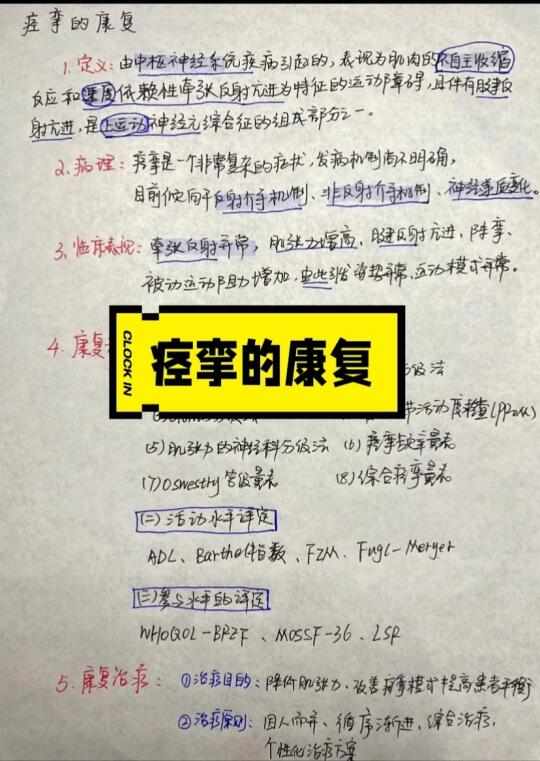 痉挛的康复
1. 定义：由中枢神经系统疾病引起的，表现为肌肉的不自主收缩
反应和速度依赖性牵张反射亢进为特征的运动障碍，且伴有腱反
射亢进，是上运动神经元综合征的组成部分之一。
2. 病理：痉挛是一个非常复杂的症状，发病机制尚不明确，
目前倾向于反射介导机制、非反射介导机制、神经
3. 临床表现：牵张反射异常，肌张力增高，腱反射亢进，阵挛，
被动运动阻力增加，由此引发姿势异常、运动模式异常。
4. 康复
CLOCK IN
痉挛的康复
级法
节活动度检查(PROM)
(5) 肌张力的神经科分级法 (6) 痉挛频率量表
(7) Oswestry等级量表 (8) 综合痉挛量表
(二) 活动水平评定
ADL、Barthel指数、FZM、Fugl-Meryer
(三) 参与水平的评定
WHOQOL-BRZF、MOSSF-36、LSR
5. 康复治疗：①治疗目的：降低肌张力、改善痉挛模式提高患者平衡
②治疗原则：因人而异、循序渐进、综合治疗，
个性化治疗方案